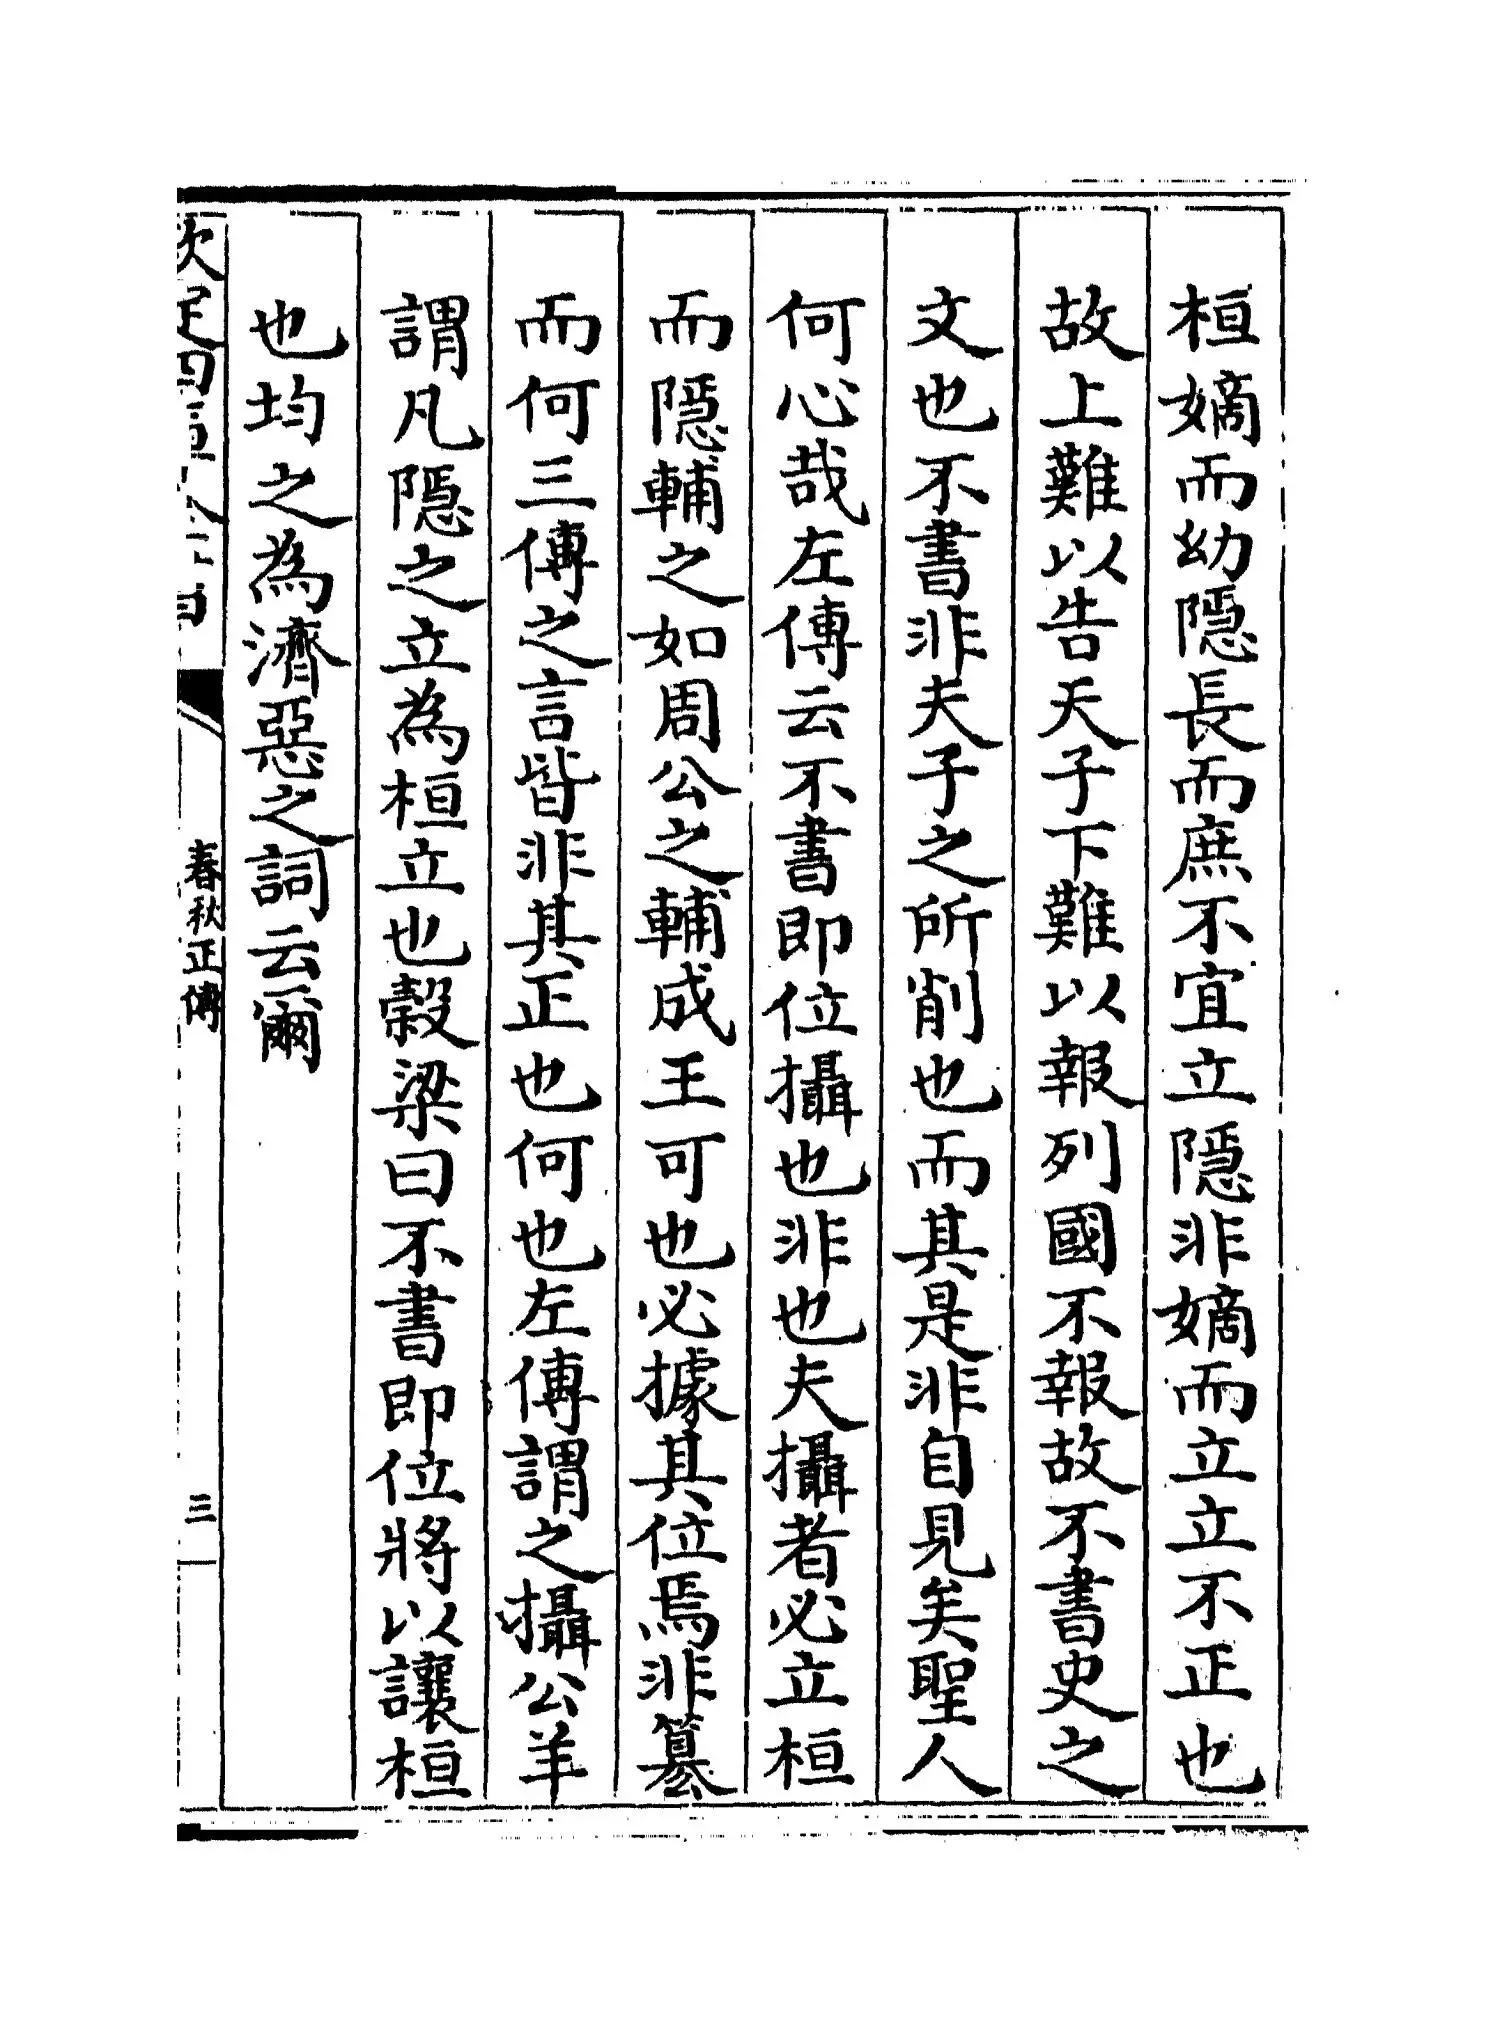 桓嫡而幼隱長而庶不宜立隱非嫡而立立不正也
故上難以告天子下難以報列國不報故不書史之
文也不書非夫子之所削也而其是非自見矣聖人
何心哉左傳云不書即位攝也非也夫攝者必立桓
而隱輔之如周公之輔成王可也必據其位焉非簒
而何三傳之言皆非其正也何也左傳謂之攝公羊
謂凡隱之立為桓立也榖梁曰不書即位將以讓桓
也均之為濟惡之詞云爾
欽定四庫全書
春秋正傳
三